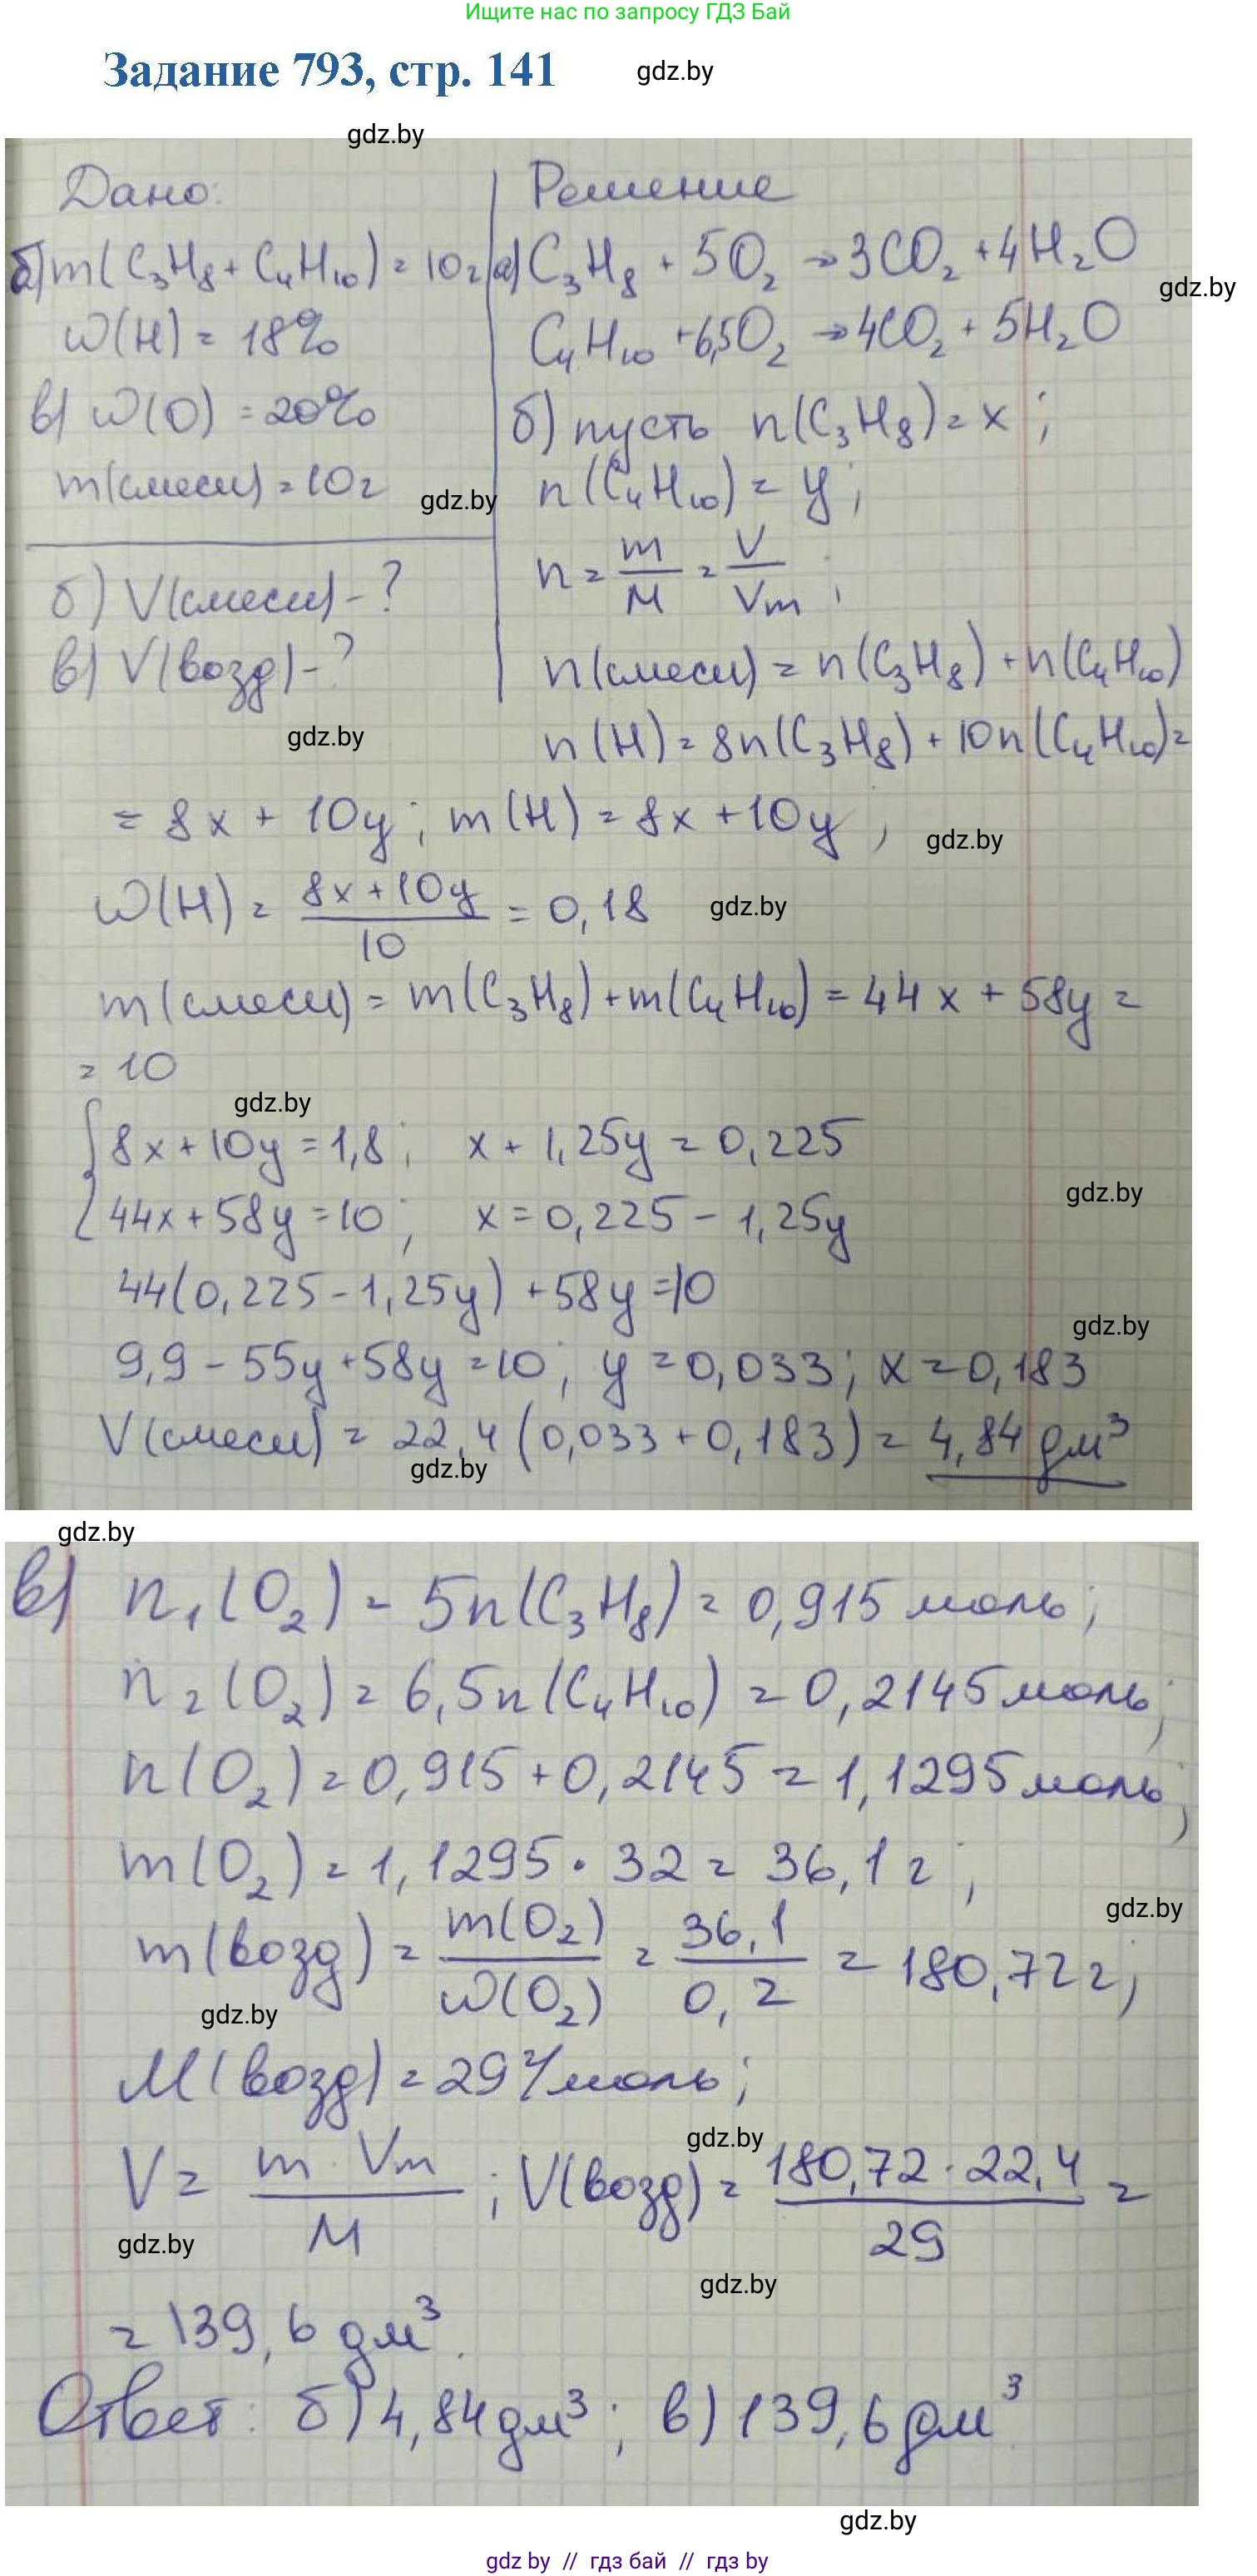 Ищите нас по запросу ГДЗ Бай
Задание 793, стр. 141
gdz.by
gdz.by
Дано:
б) m(C₃H₈ + C₄H₁₀) = 10г
w(H) = 18%
в) w(O) = 20%
m(смеси) = 10г
gdz.by
б) V(смеси) - ?
в) V(возд) - ?
gdz.by
Решение
а) C₃H₈ + 5O₂ → 3CO₂ + 4H₂O
gdz.by
C₄H₁₀ + 6,5O₂ → 4CO₂ + 5H₂O
б) пусть n(C₃H₈) = x ;
n(C₄H₁₀) = y ;
n = m/M = V/Vm ;
n(смеси) = n(C₃H₈) + n(C₄H₁₀)
n(H) = 8n(C₃H₈) + 10n(C₄H₁₀) =
= 8x + 10y ; m(H) = 8x + 10y ;
gdz.by
w(H) = (8x + 10y)/10 = 0,18
gdz.by
m(смеси) = m(C₃H₈) + m(C₄H₁₀) = 44x + 58y =
= 10
gdz.by
{8x + 10y = 1,8 ; x + 1,25y = 0,225
gdz.by
44x + 58y = 10 ; x = 0,225 - 1,25y
44(0,225 - 1,25y) + 58y = 10
gdz.by
9,9 - 55y + 58y = 10 ; y = 0,033 ; x = 0,183
V(смеси) = 22,4 (0,033 + 0,183) = 4,84 дм³
gdz.by
gdz.by
в) n₁(O₂) = 5n(C₃H₈) = 0,915 моль ;
n₂(O₂) = 6,5n(C₄H₁₀) = 0,2145 моль ;
n(O₂) = 0,915 + 0,2145 = 1,1295 моль ;
m(O₂) = 1,1295 · 32 = 36,1 г ;
gdz.by
m(возд) = m(O₂)/w(O₂) = 36,1/0,2 = 180,72 г ;
gdz.by
M(возд) = 29 г/моль ;
gdz.by
V = m · Vm/M ; V(возд) = 180,72 · 22,4/29 =
gdz.by
gdz.by
= 139,6 дм³.
Ответ : б) 4,84 дм³ ; в) 139,6 дм³
gdz.by
gdz by // гдз бай // гдз by